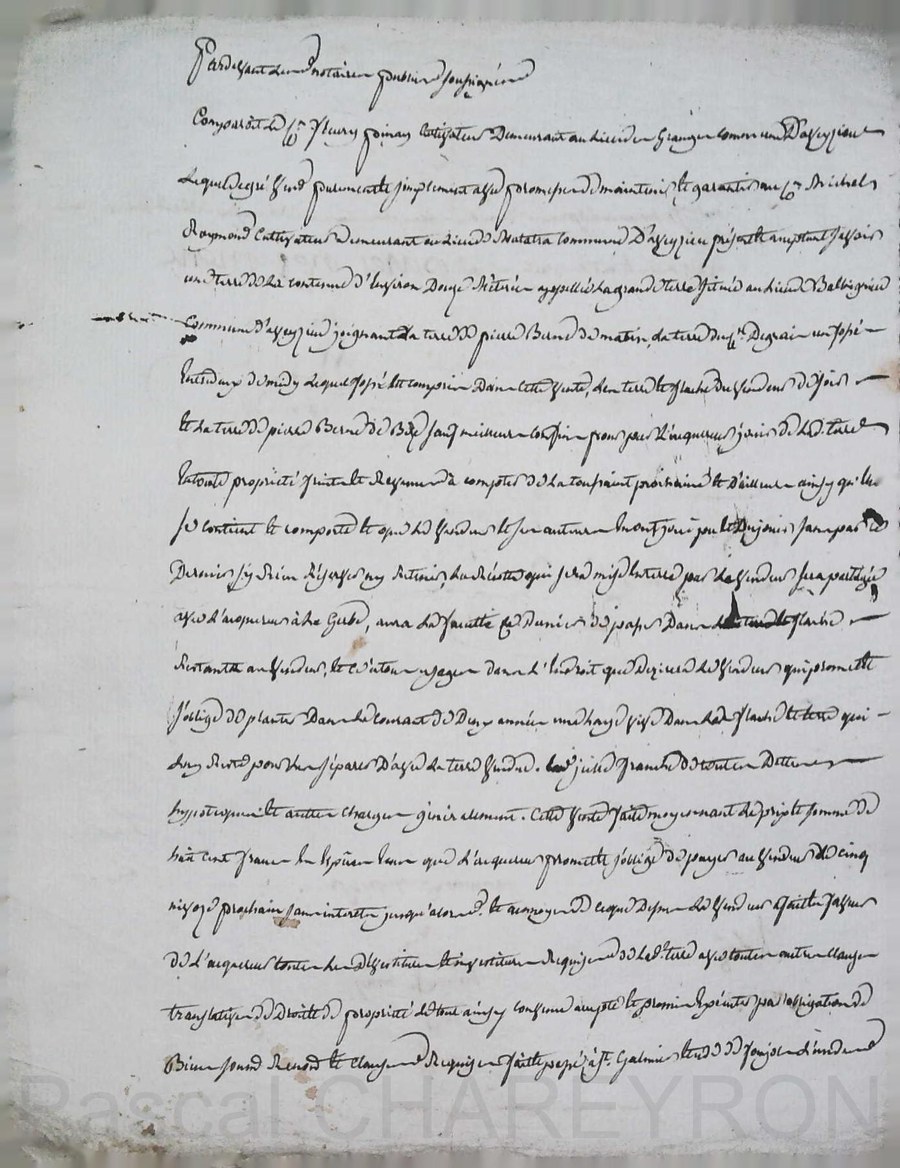 Pardevant le notaire public soussigné
Comparoit le Cn. fleury poinas Cultivateur Demeurant au lieu de Grange commune D'aveyzieu
Lequel de gré vend purement et simplement avec promesse de maintenir et garantir au Cn. Michel
Raymond Cultivateur Demeurant au lieu de Matatra Commune D'aveyzieu présent et acceptant savoir
une terre de la contenue d'Environ Douze Méterée appellée La grande terre située au lieu de Balbigneu
Commune d'aveyzieu joignant La terre de pierre Berne de matin, la terre du Cn. Degrain un fossé
Entredeux de midy Lequel fossé est compris Dans cette vente, la terre et flache du vendeur de soir
et La terre de pierre Berne de Bize sauf meilleurs Confins pour par L'acquereur jouir de La d. terre
En toute propriété fruits et Revenus à compter de La toussaint prochaine et D'ailleurs ainsy qu'elle
se contient et comporte et que Le vendeur et ses auteurs En ont joui pu et Dû jouir sans par ce
Dernier s'y Rien Réserver ny Retenir, La Récolte qui sera mise En terre par Le vendeur sera partagée
avec L'acquereur à La Gerbe, aura La faculté ce Dernier de passer Dans flache
Restante au vendeur, et ce à tous usages dans L'Endroit que Dezirera Le vendeur qui promet et
s'oblige de planter Dans Le courant de Deux années une haye vive Dans La d. flache et terre qui
Luy Reste pour La séparer D'avec La terre vendue. franche de toutes Dettes
hypoteques et autres charges généralement. Cette vente faite moyennant Le prix et somme de
huit cent francs En Espèces Sonn que L'acquereur promet et s'oblige de payer au vendeur Le cinq
nivoze prochain sans interets jusqu'alors. et au moyen de ce que Dessus Le vendeur a fait En faveur
de L'acquereur toutes Les Devestitures et investitures Requises de La d. terre avec toutes autres clauses
translatives de Droits de propriété Le tout ainsy convenu accepté et promis Exécuter par obligation de
Biens soumis Renon et clauses Requises fait et passé à St. Galmier
Pascal CHAREYRON